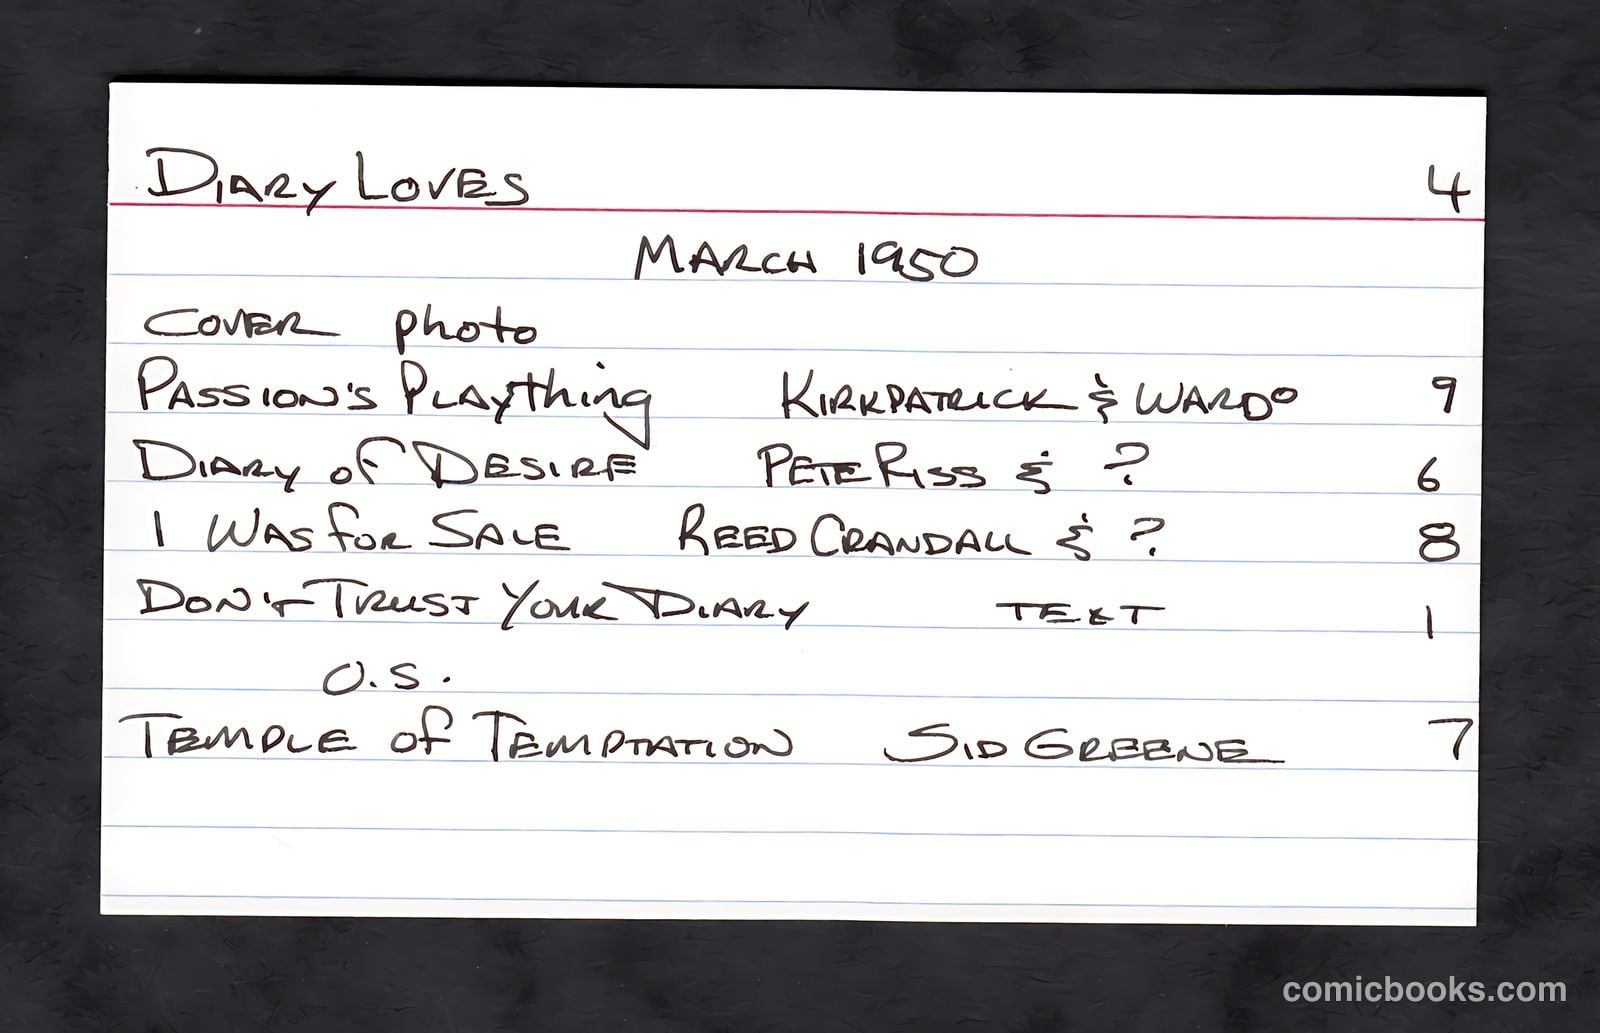 Diary Loves 4
March 1950
Cover photo
Passion's Plaything Kirkpatrick & Ward° 9
Diary of Desire Pete Riss & ? 6
I Was for Sale Reed Crandall & ? 8
Don't Trust Your Diary text 1
O.S.
Temple of Temptation Sid Greene 7
comicbooks.com